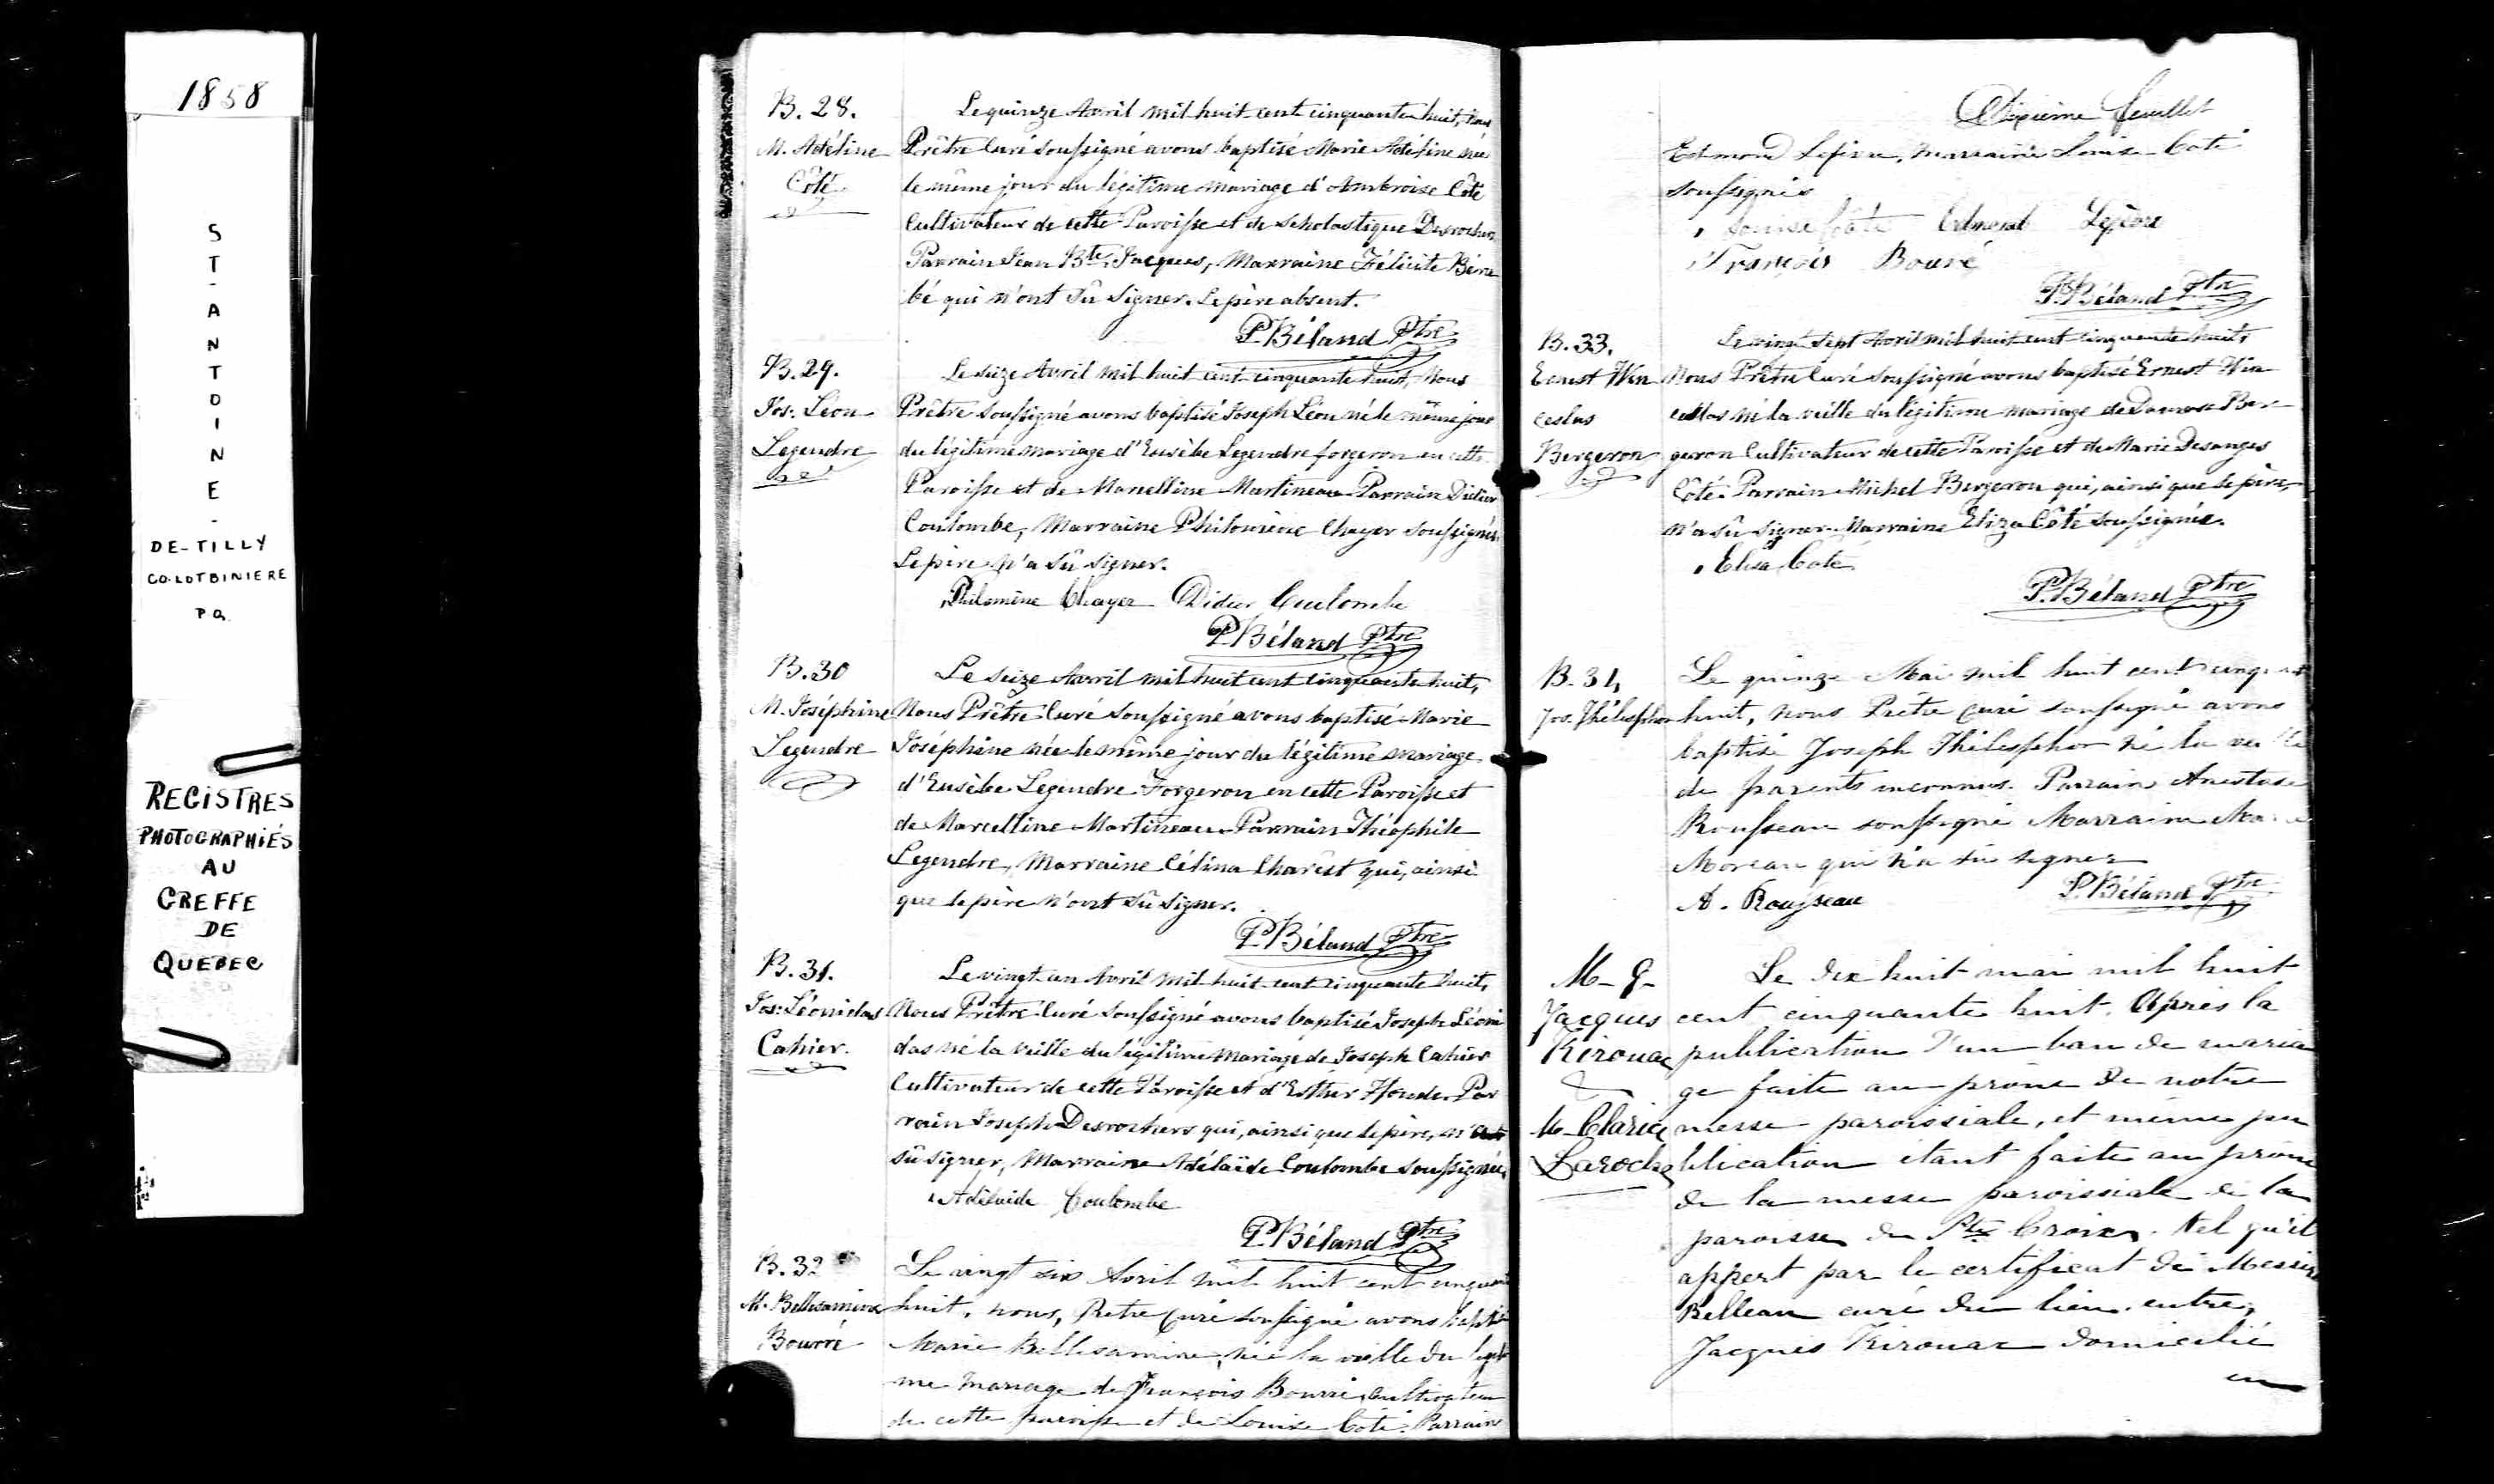 1858
ST-ANTOINE-
DE-TILLY
CO-LOTBINIERE
PQ
REGISTRES
PHOTOGRAPHIÉS
AU
GREFFE
DE
QUEBEC
B. 28.
M. Adéline
Côté
Le quinze Avril mil huit cent cinquante huit, nous
Prêtre Curé soussigné avons baptisé Marie Adéline née
le même jour du légitime mariage d'Ambroise Côté
Cultivateur de cette Paroisse et de Scholastique Desrochers
Parrain Jean Bte Jacques, Marraine Félicité Béru
bé qui n'ont sû signer. Le père absent.
P. Béland Ptre
B. 29.
Jos: Léon
Legendre
Le seize Avril mil huit cent cinquante huit, Nous
Prêtre soussigné avons baptisé Joseph Léon né le même jour
du légitime mariage d'Eusèbe Legendre forgeron en cette
Paroisse et de Marcelline Martineau Parrain Didier
Coulombe, Marraine Philomène Chayer soussignés.
Le père n'a sû signer.
Philomène Chayer Didier Coulombe
P. Béland Ptre
B. 30
M. Joséphine
Legendre
Le seize Avril mil huit cent cinquante huit,
Nous Prêtre Curé soussigné avons baptisé Marie
Joséphine née le même jour du légitime mariage
d'Eusèbe Legendre Forgeron en cette Paroisse et
de Marcelline Martineau Parrain Théophile
Legendre, Marraine Célina Charest qui, ainsi
que le père n'ont sû signer.
P. Béland Ptre
B. 31.
Jos: Léonidas
Cahier.
Le vingt un Avril mil huit cent cinquante huit,
Nous Prêtre Curé soussigné avons baptisé Joseph Léoni
das né la veille du légitime mariage de Joseph Cahier
Cultivateur de cette Paroisse et d'Esther Houde. Par
rain Joseph Desrochers qui, ainsi que le père, n'
sû signer, Marraine Adélaïde Coulombe soussignée,
Adélaïde Coulombe
P. Béland Ptre
B. 32
M. Bellesamine
Bourré
Le vingt six Avril mil huit cent cinquante
huit, nous, Pretre Curé soussigné avons baptisé
Marie Bellesamine, née la veille du légiti
me mariage de François Bourré, Cultivateur
de cette paroisse et de Louise Coté. Parrain
Dixième feuillet
Edmond Lefèvre, marraine Louise Coté
soussignés
Louise Côté Edmond Lefèvre
François Bouré
P. Béland Ptre
B. 33.
Ernest Win
ceslas
Bergeron
Le vingt sept Avril mil huit cent cinquante huit,
Nous Prêtre Curé soussigné avons baptisé Ernest Win
ceslas né la veille du légitime mariage de Damase Ber
geron Cultivateur de cette Paroisse et de Marie Desanges
Côté. Parrain Michel Bergeron qui, ainsi que le père,
n'a sû signer. Marraine Eliza Côté soussignée.
Elisa Coté
P. Béland Ptre
B. 34
Jos. Thélesphor
Le quinze Mai mil huit cent cinquant
huit, nous Prêtre Curé soussigné avons
baptisé Joseph Thélesphor né la veille
de parents inconnus. Parrain Anastase
Rousseau soussigné Marraine Marie
Moreau qui n'a sû signer
A. Rousseau P. Béland Ptre
M-9-
Jacques
Kirouac
M-Clarice
Laroche
Le dix huit mai mil huit
cent cinquante huit. Après la
publication d'un ban de maria
ge faite au prône de notre
messe paroissiale, et même pu
blication étant faite au prône
de la messe paroissiale de la
paroisse de Ste Croix. tel qu'il
appert par le certificat de Messire
Belleau curé du lieu. entre,
Jacques Kirouac domicilié
en